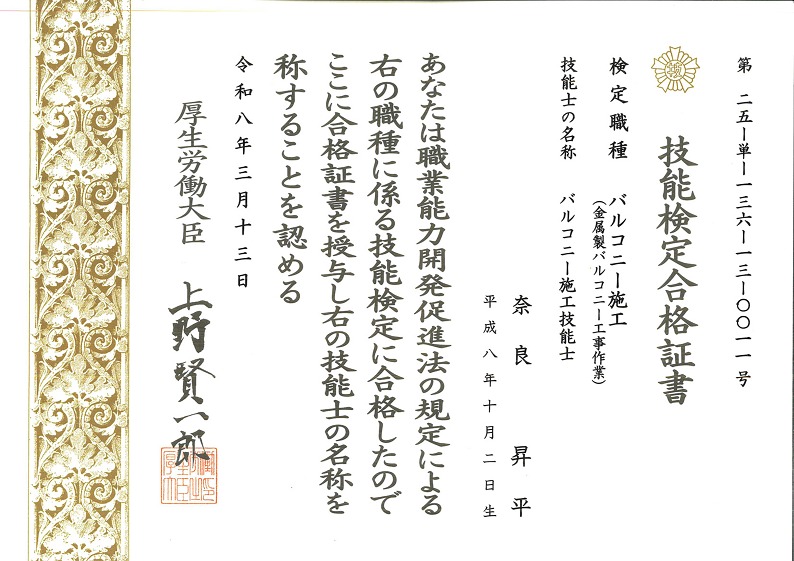 第二五ー単ー一三六ー一三ー〇〇一一号
技能検定合格証書
検定職種 バルコニー施工
(金属製バルコニー工事作業)
技能士の名称 バルコニー施工技能士
奈良 昇平
平成八年十月二日生
あなたは職業能力開発促進法の規定による
右の職種に係る技能検定に合格したので
ここに合格証書を授与し右の技能士の名称を
称することを認める
令和八年三月十三日
厚生労働大臣 上野賢一郎